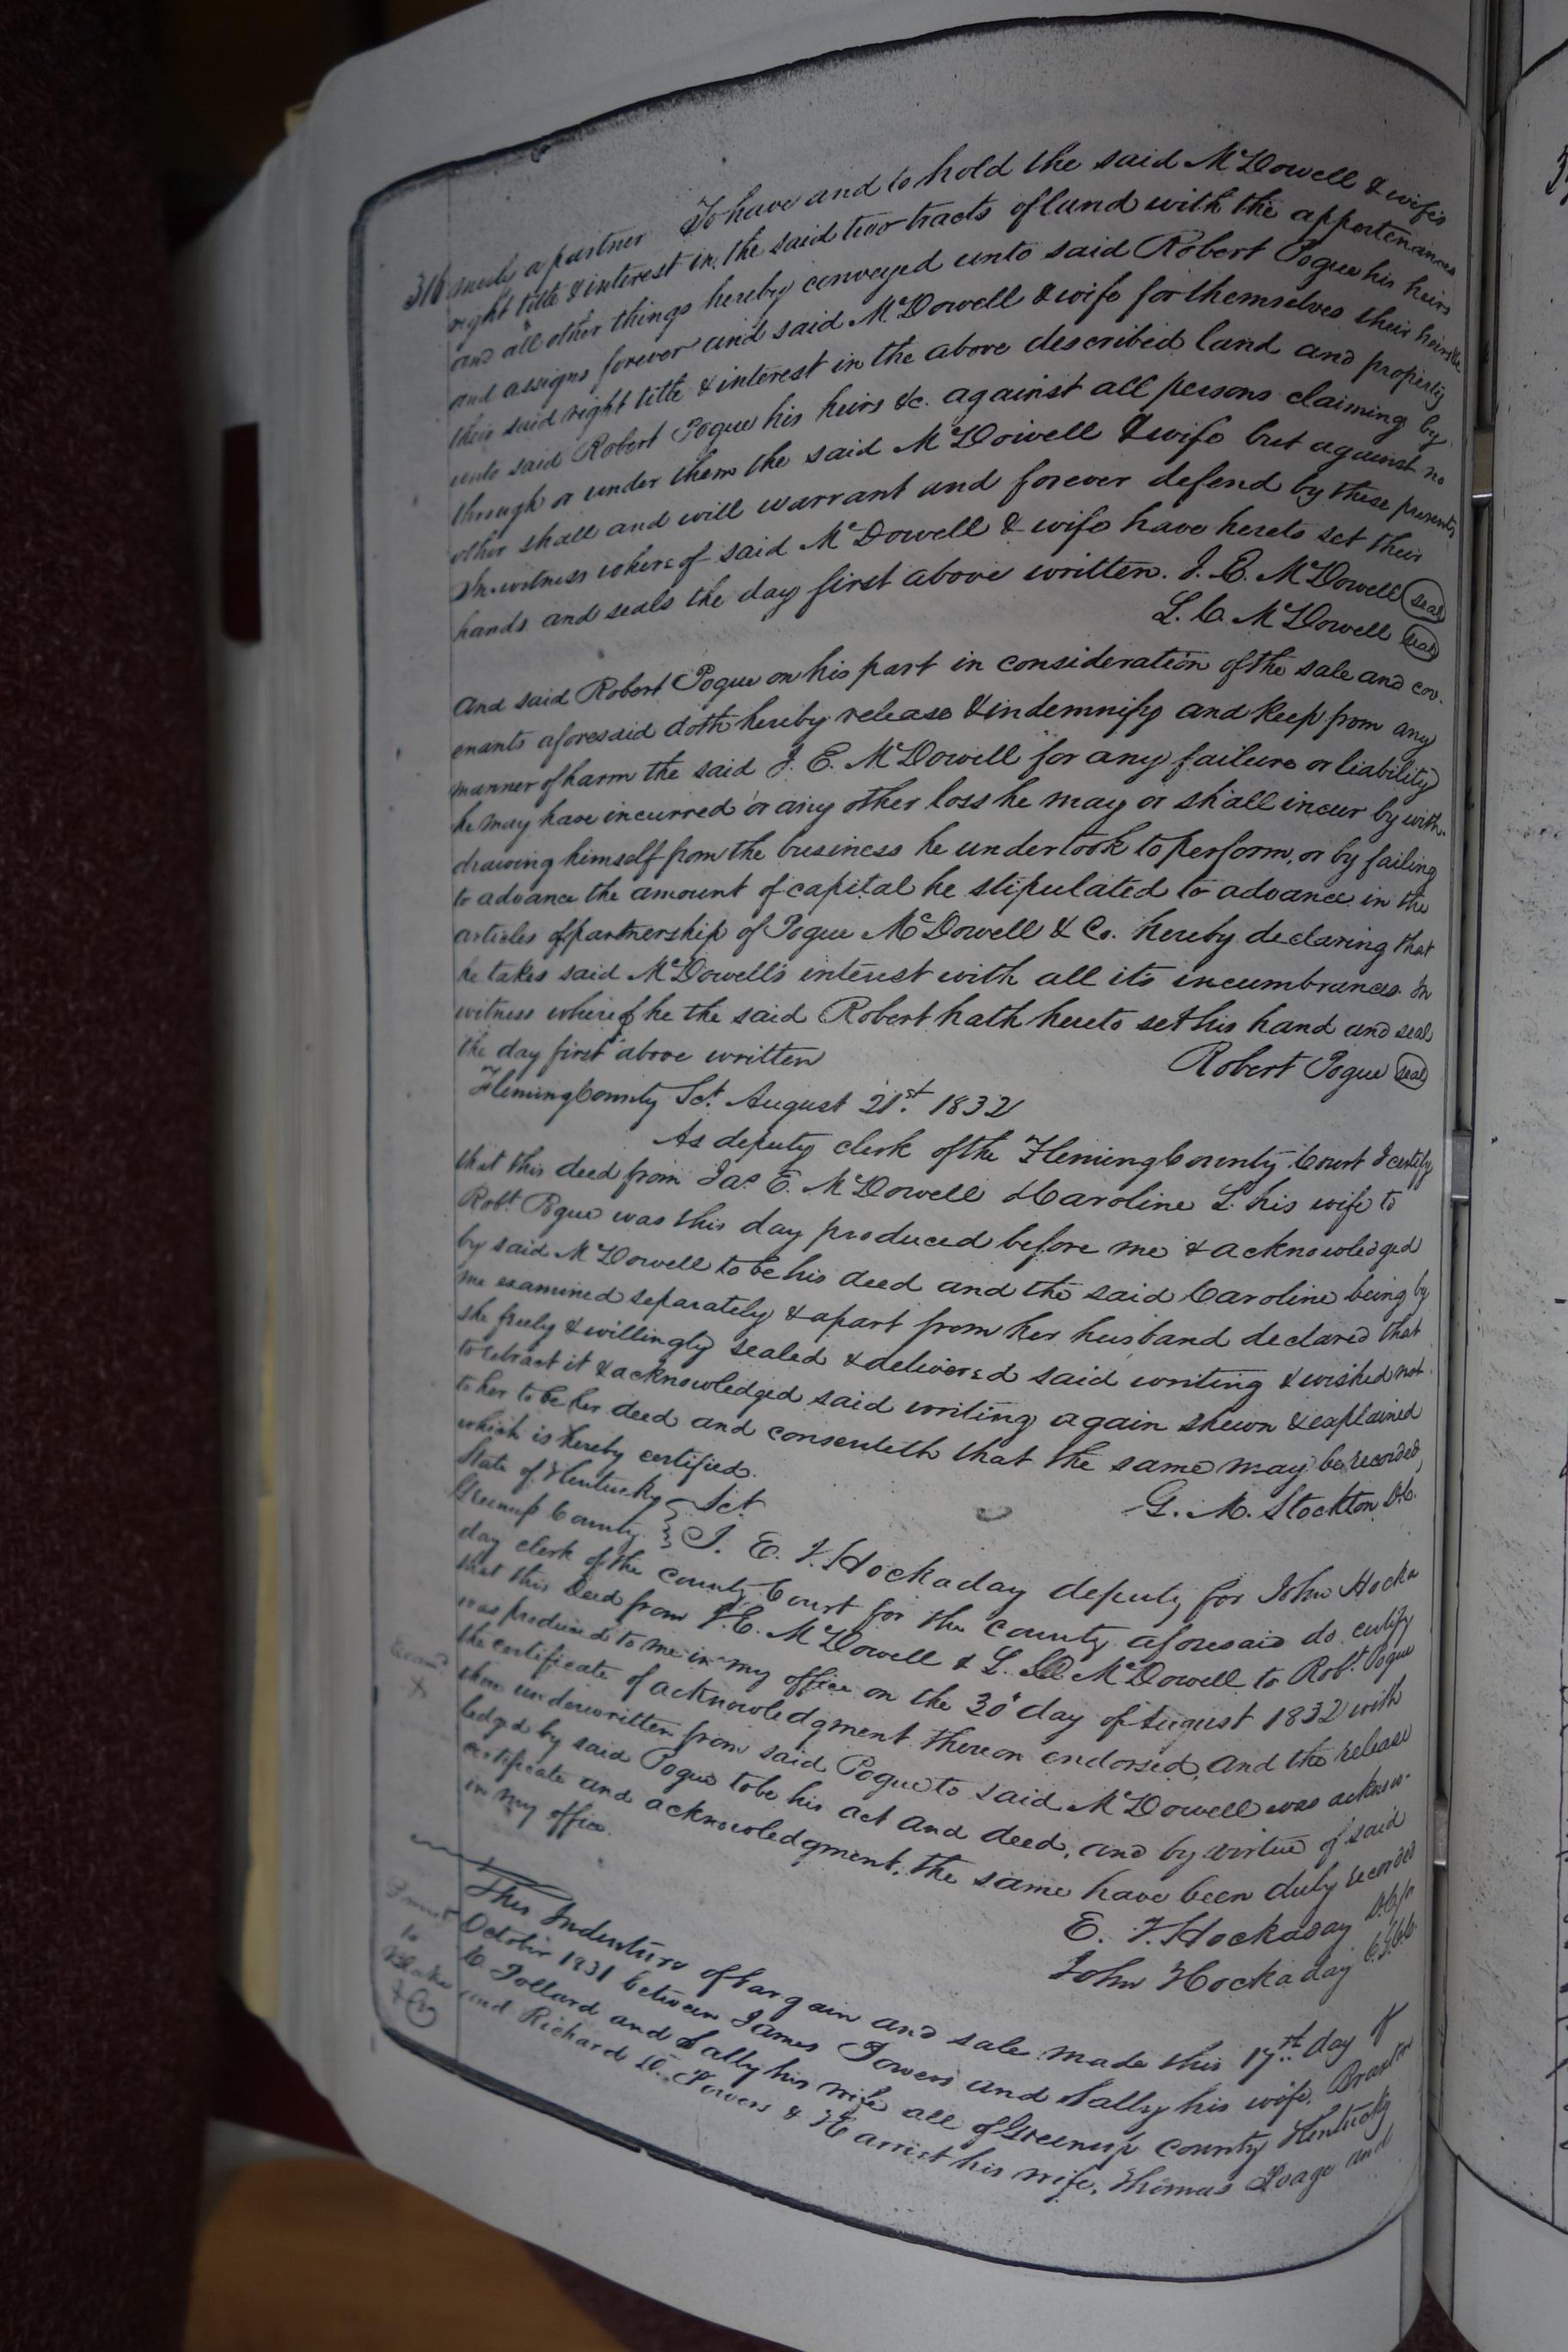 316 such a partner To have and to hold the said McDowell & wife's
right title & interest in the said two tracts of land with the appertenances
and all other things hereby conveyed unto said Robert Pogue his heirs
and assigns forever and said McDowell & wife for themselves their heirs &c
their said right title & interest in the above described land and property
unto said Robert Pogue his heirs &c. against all persons claiming by
through or under them the said McDowell & wife but against no
other shall and will warrant and forever defend by these presents
In witness whereof said McDowell & wife have hereto set their
hands and seals the day first above written. J. E. McDowell (seal)
L. C. McDowell (seal)
And said Robert Pogue on his part in consideration of the sale and cov-
enants aforesaid doth hereby release & indemnify and keep from any
manner of harm the said J. E. McDowell for any failure or liability
he may have incurred or any other loss he may or shall incur by with-
drawing himself from the business he undertook to perform, or by failing
to advance the amount of capital he stipulated to advance in the
articles of partnership of Pogue McDowell & Co. hereby declaring that
he takes said McDowell's interest with all its incumbrances In
witness whereof he the said Robert hath hereto set his hand and seal
the day first above written Robert Pogue (seal)
Fleming County Sct. August 21st. 1832
As deputy clerk of the Fleming County Court I certify
that this deed from Jas E. McDowell & Caroline L. his wife to
Robt. Pogue was this day produced before me & acknowledged
by said McDowell to be his deed and the said Caroline being by
me examined separately & apart from her husband declared that
she freely & willingly sealed & delivered said writing & wished not
to retract it & acknowledged said writing again shewn & explained
to her to be her deed and consenteth that the same may be recorded,
which is hereby certified.
G. M. Stockton D.C.
State of Kentucky Sct
Greenup County } I. E. F. Hockaday deputy for John Hocka
day clerk of the county Court for the county aforesaid do certify
that this Deed from J. E. McDowell & L. C. McDowell to Robt. Pogue
was produced to me in my office on the 30" day of August 1832 with
the certificate of acknowledgment thereon endorsed, and the release
thereunderwritten from said Pogue to said McDowell was acknow-
ledged by said Pogue to be his act and deed, and by virtue of said
certificate and acknowledgment, the same have been duly recorded
in my office.
Exam'd
X
E. F. Hockaday
John Hockaday
This Indenture of bargain and sale made this 17th day of
October 1831 between James Powers and Sally his wife, Braxton
C. Pollard and Sally his wife all of Greenup county Kentucky
and Richard D. Powers & Harriet his wife, Thomas Poage and
Powers
to
Blake
& Co